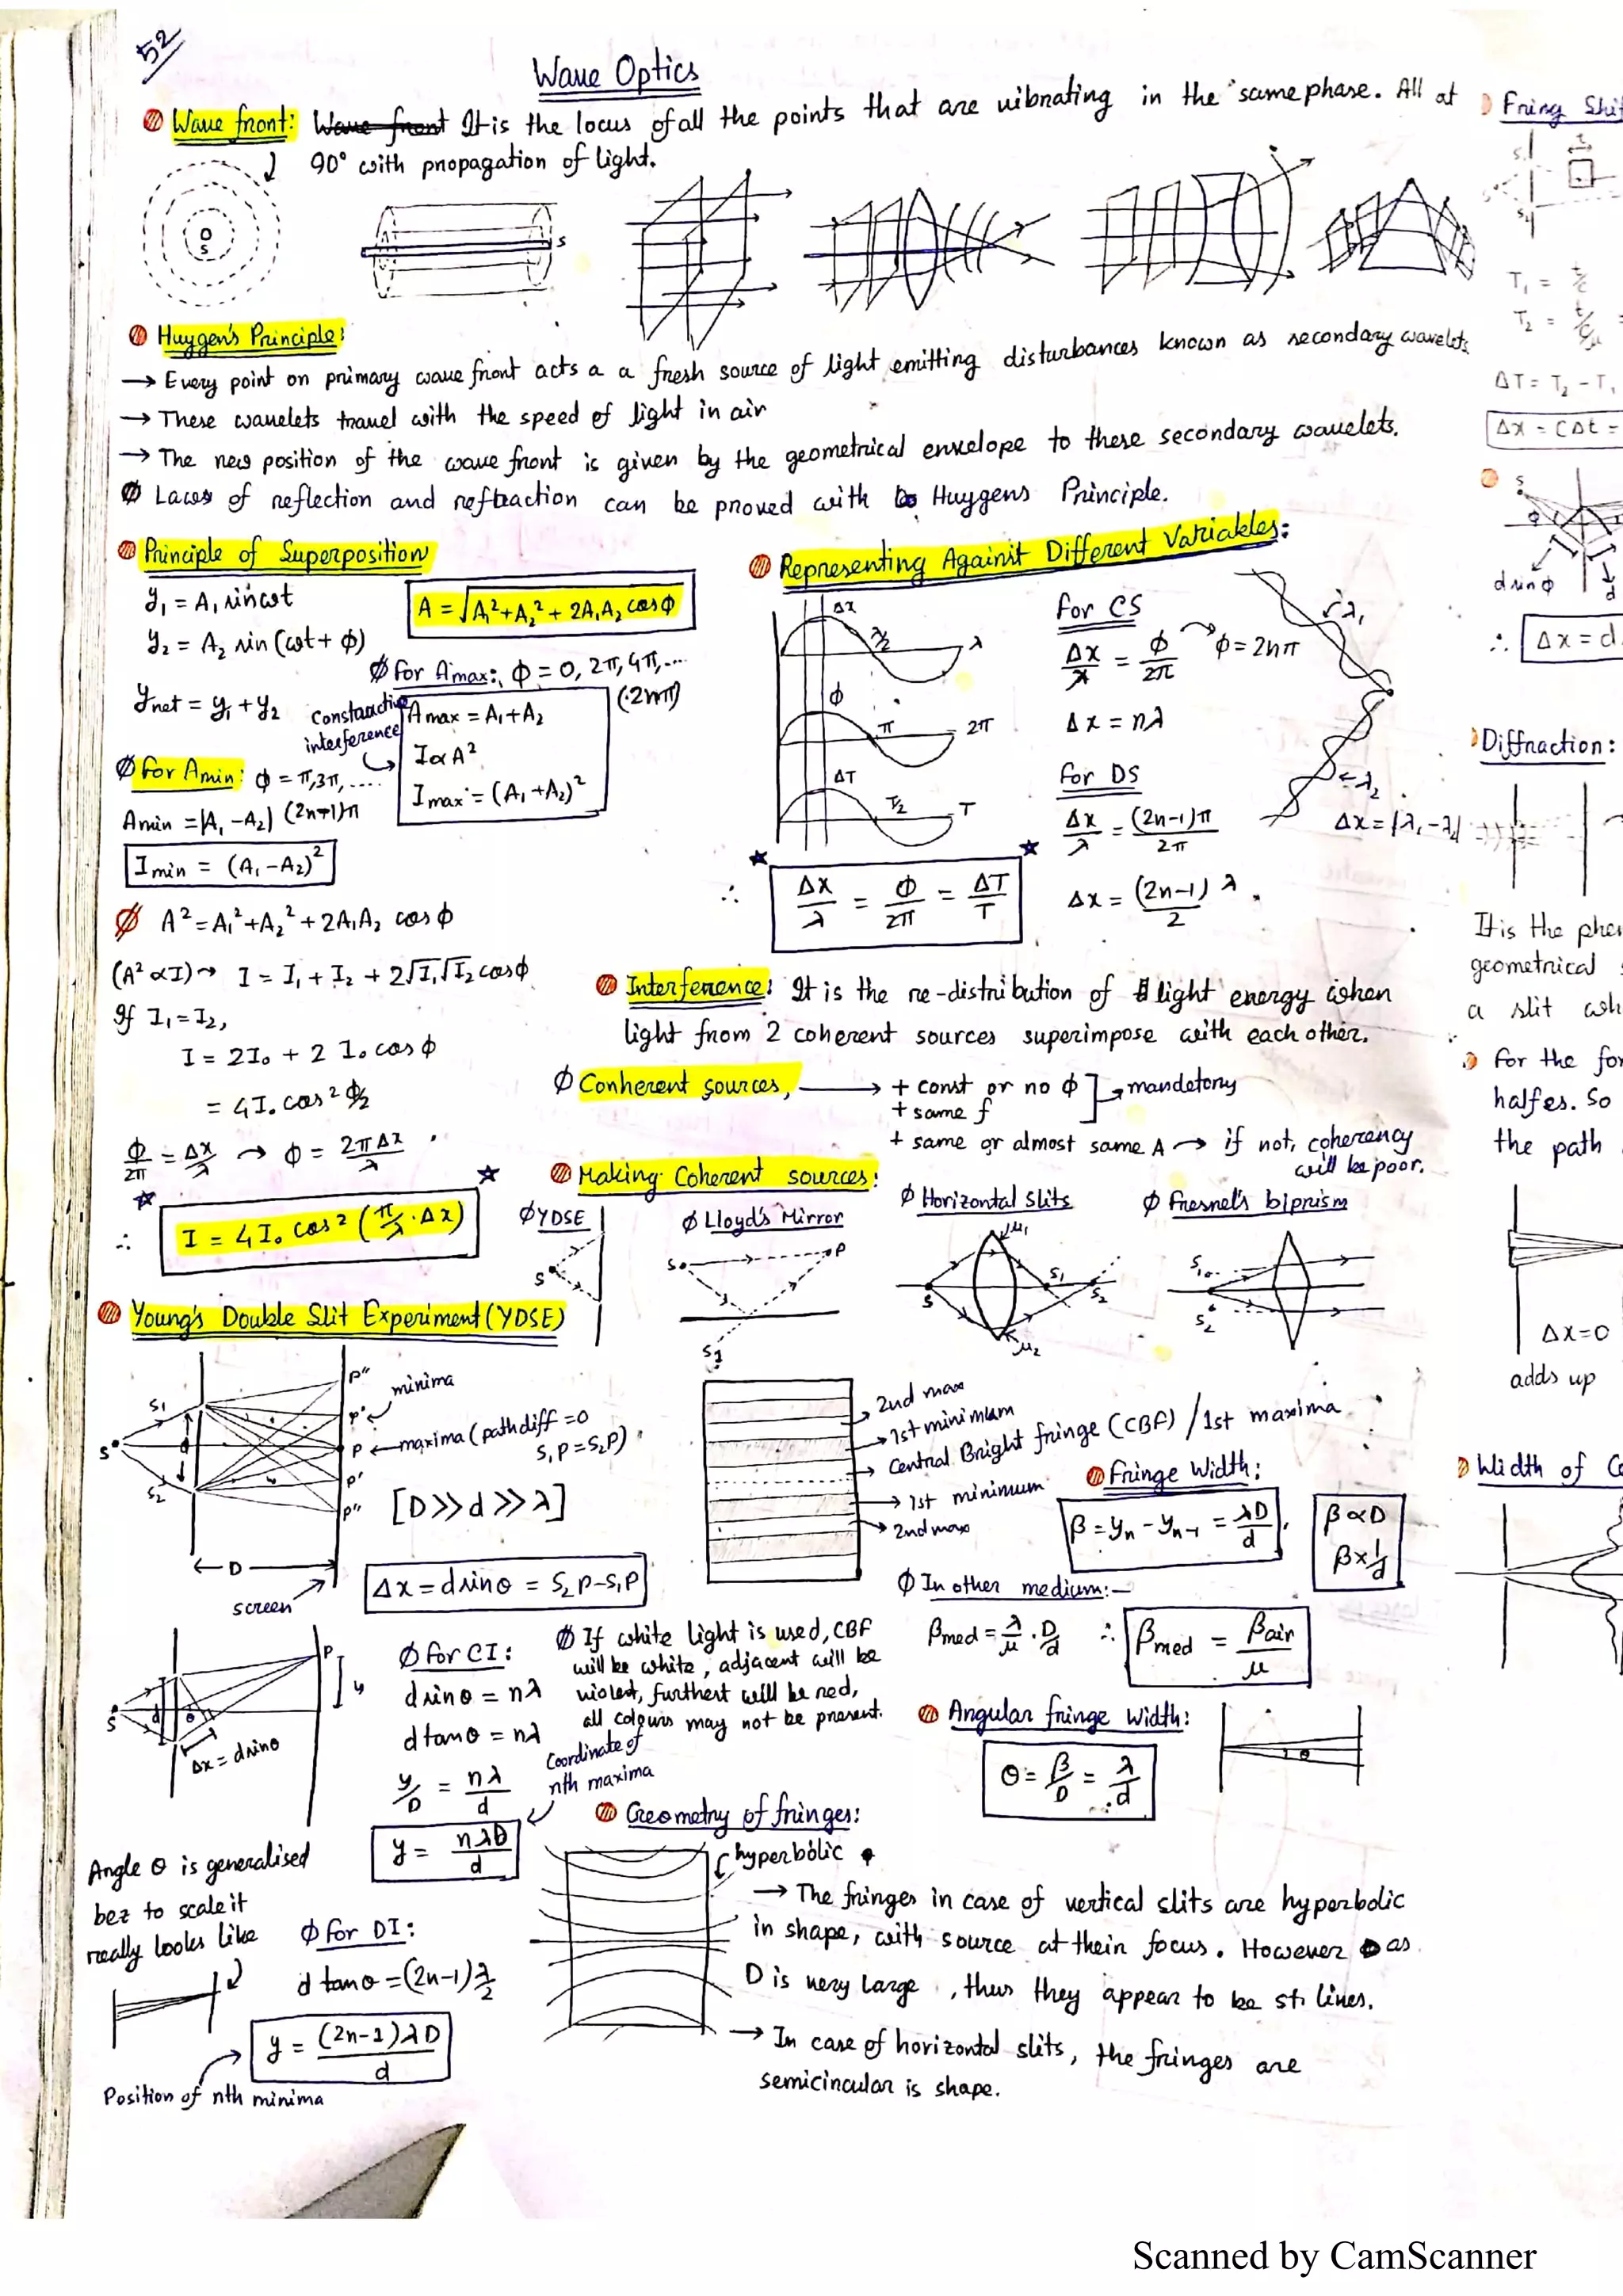 52
Wave Optics
Wave front: Wave front It is the locus of all the points that are vibrating in the same phase. All at
90° with propagation of light.
S
S
Huygen's Principle:
→ Every point on primary wave front acts a a fresh source of light emitting disturbances known as secondary wavelets.
→ These wavelets travel with the speed of light in air
→ The new position of the wave front is given by the geometrical envelope to these secondary wavelets.
Ø Laws of reflection and refraction can be proved with Huygens Principle.
Principle of Superposition
y₁ = A₁ sin ωt
y₂ = A₂ sin (ωt + ϕ)
y net = y₁ + y₂
A = √A₁²+A₂² + 2A₁A₂ cos ϕ
Ø For Amax: ϕ = 0, 2π, 4π, ....
(2nπ)
Constructive
interference
A max = A₁+A₂
I ∝ A²
I max = (A₁ +A₂)²
Ø For Amin: ϕ = π, 3π, ....
(2n-1)π
A min = |A₁ -A₂|
I min = (A₁ -A₂)²
Ø A² = A₁²+A₂² + 2A₁A₂ cos ϕ
(A² ∝ I) → I = I₁ + I₂ + 2√I₁√I₂ cos ϕ
If I₁=I₂,
I = 2I₀ + 2 I₀ cos ϕ
= 4I₀ cos² ϕ/2
ϕ/2π = Δx/λ → ϕ = 2πΔx/λ
∴ I = 4I₀ cos² (π/λ · Δx)
Representing Against Different Variables:
Δx
λ/2
λ
ϕ
π
2π
ΔT
T/2
T
∴ Δx/λ = ϕ/2π = ΔT/T
For CS
Δx/λ = ϕ/2π → ϕ = 2nπ
Δx = nλ
For DS
Δx/λ = (2n-1)π/2π
Δx = (2n-1)/2 λ
λ₁
λ₂
Δx = |λ₁ -λ₂|
Interference: It is the re-distribution of light energy when
light from 2 coherent sources superimpose with each other.
Ø Conherent sources, → + const or no ϕ
+ same f
mandatory
+ same or almost same A → if not, coherency
will be poor.
Making Coherent sources:
Ø YDSE
S
Ø Lloyd's Mirror
S
P
S₁
Ø Horizontal Slits
μ₁
S
S₁
S₂
μ₂
Ø Fresnel's biprism
S₁
S
S₂
Young's Double Slit Experiment (YDSE)
S
S₁
S₂
d
P''
P'
P
P'
P''
minima
maxima (path diff =0
S₁P = S₂P)
[D>>d>>λ]
← D →
screen
Δx = d sin θ = S₂P-S₁P
2nd max
1st minimum
Central Bright fringe (CBF) /1st maxima
1st minimum
2nd max
Fringe Width:
β = yₙ - yₙ₋₁ = λD/d
β ∝ D
β ∝ 1/d
Ø In other medium:-
βmed = λ/μ · D/d ∴ βmed = βair/μ
S
d
θ
P
y
Δx = d sin θ
Ø For CI:
d sin θ = nλ
d tan θ = nλ
y/D = nλ/d
y = nλD/d
Coordinate of
nth maxima
Ø If white light is used, CBF
will be white, adjacent will be
violet, furthest will be red,
all colours may not be present.
Angular fringe Width:
θ = β/D = λ/d
θ
Angle θ is generalised
bcz to scale it
really looks like
Ø For DI:
d tan θ = (2n-1)λ/2
y = (2n-1)λD/d
Position of nth minima
Geometry of fringes:
hyperbolic
→ The fringes in case of vertical slits are hyperbolic
in shape, with source at their focus. However as
D is very large, thus they appear to be st. lines.
→ In case of horizontal slits, the fringes are
semicircular is shape.
Fring Shi
S₁
t
S₂
T₁ = t/c
T₂ =
ΔT = T₂ - T₁
Δx = CΔt =
S
ϕ
d sin ϕ
d
∴ Δx = d
Diffraction:
It is the phe
geometrical
a slit wh
For the fo
halfes. So
the path
Δx=0
adds up
Width of C
Scanned by CamScanner